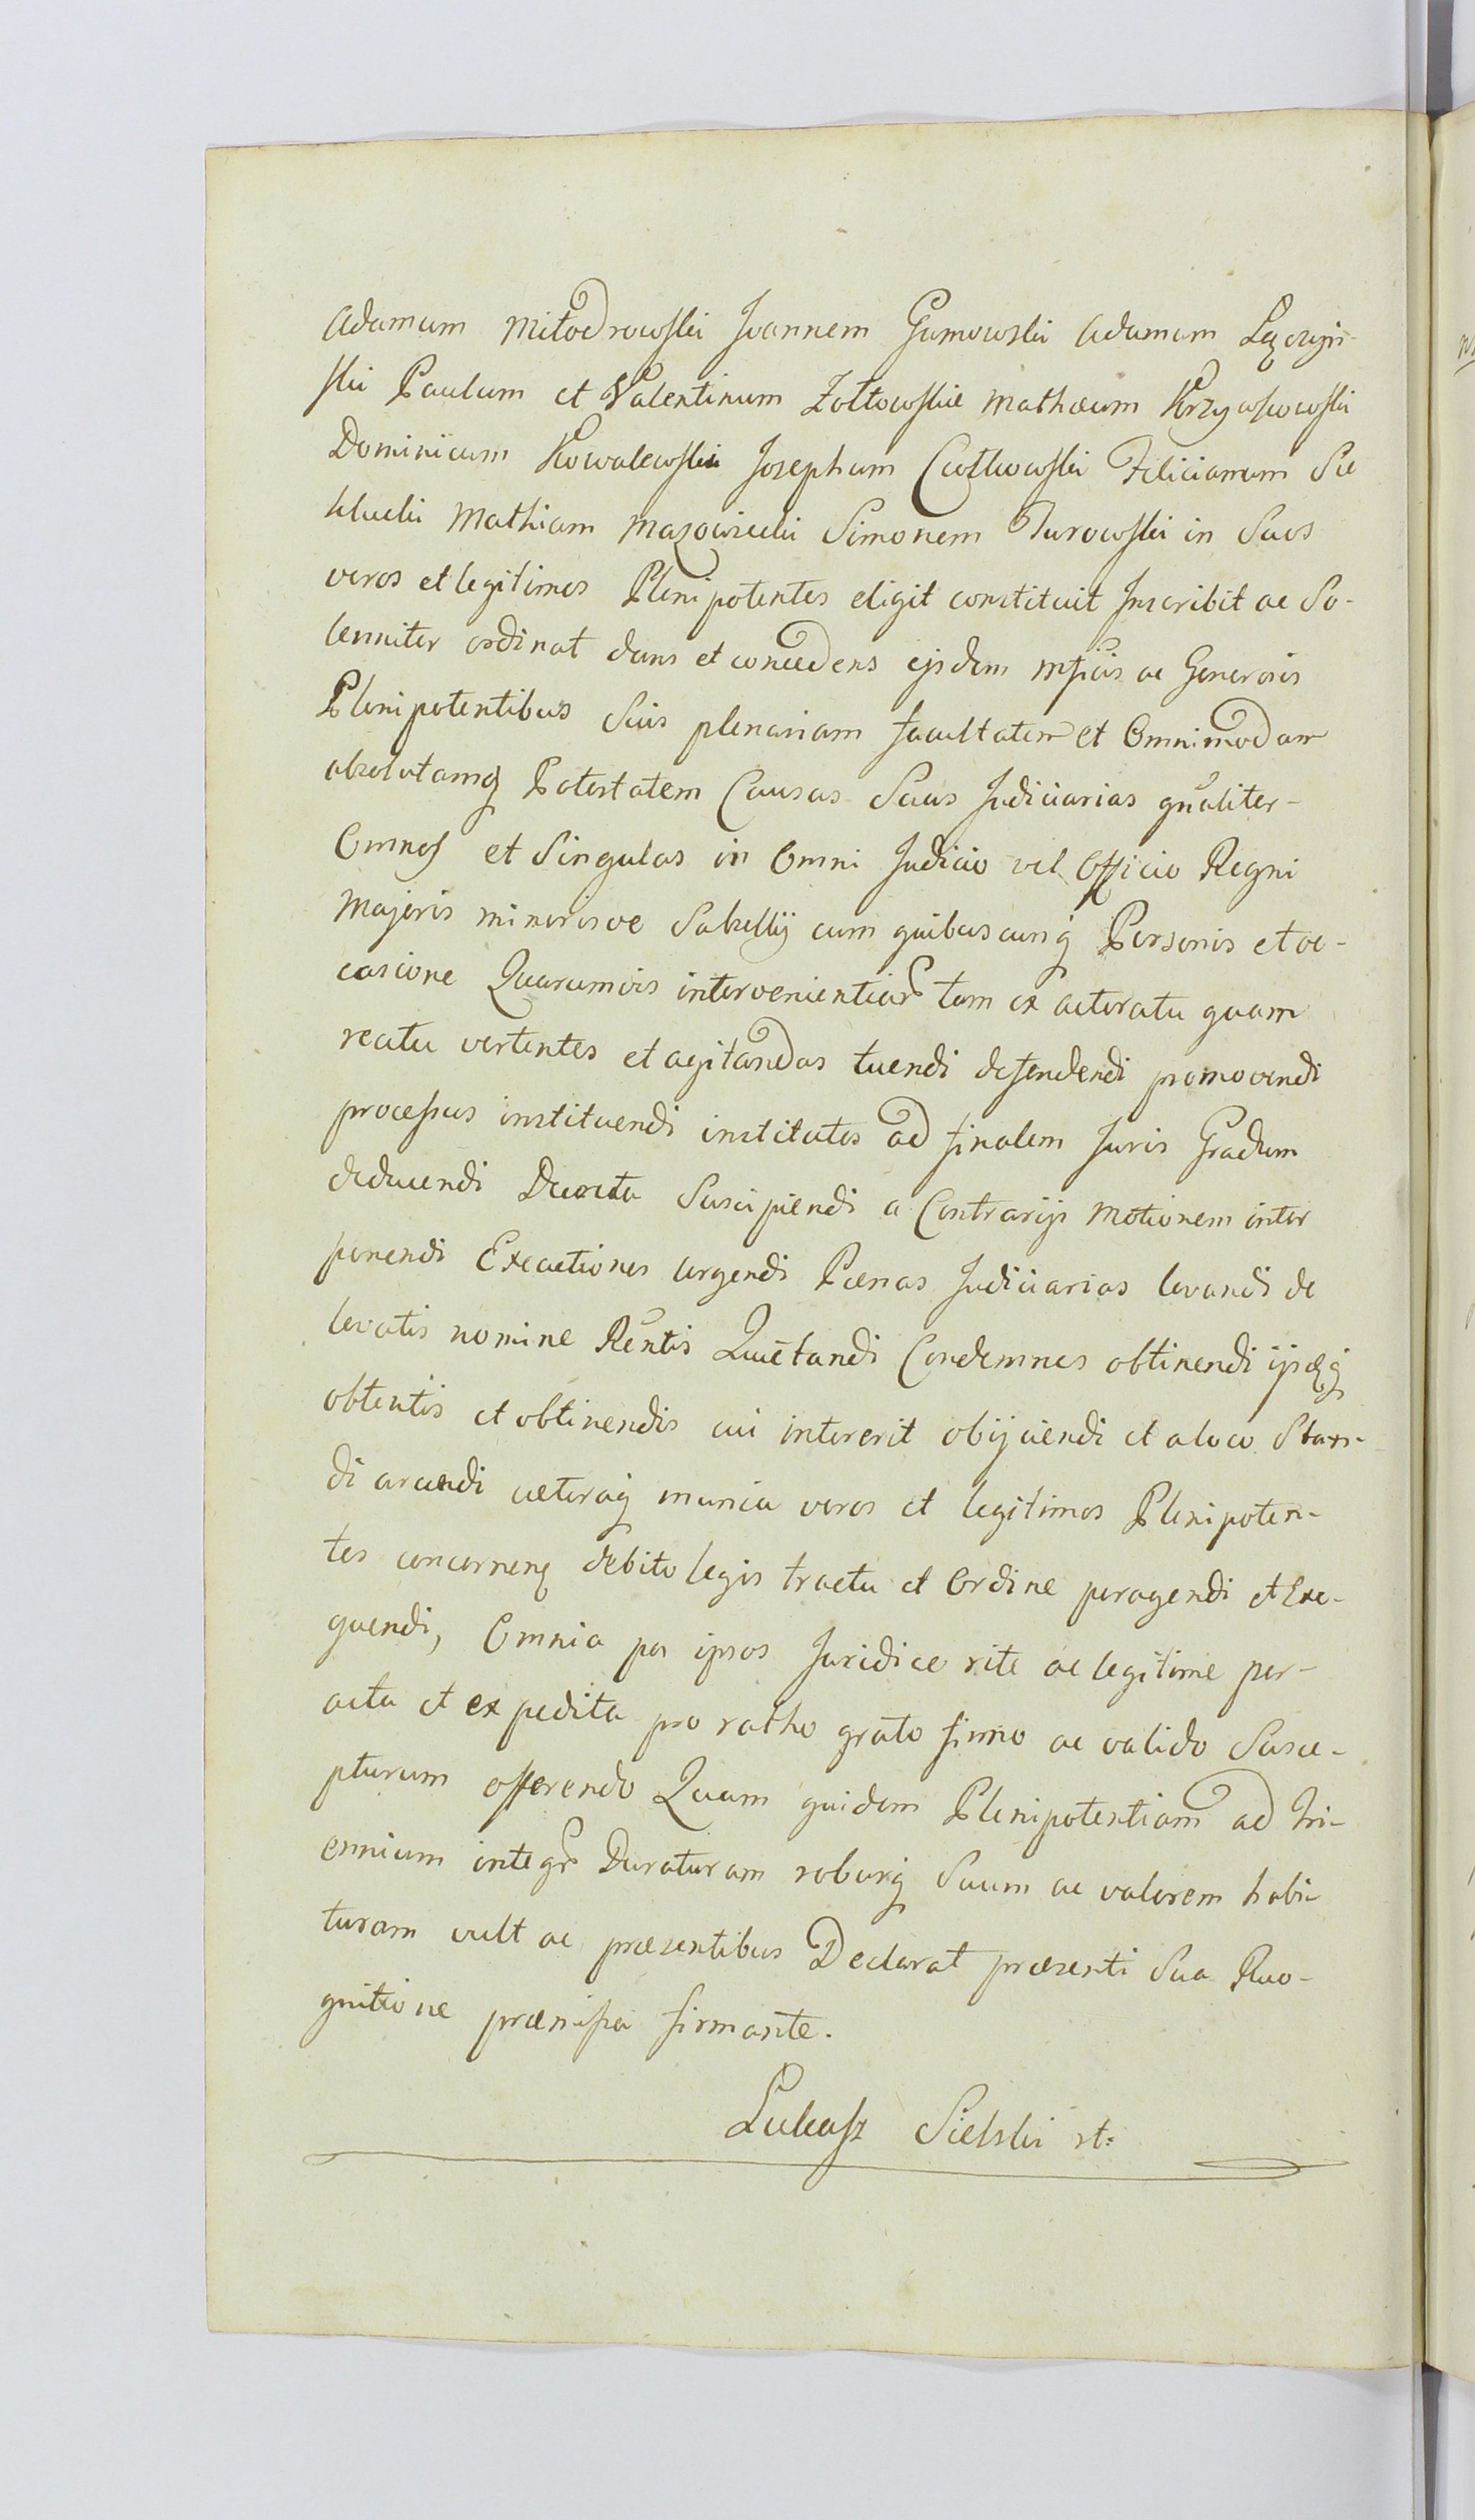 Adamum Miłodrowski Joannem Gumowski Adamum Łączyń-
ski Paulum et Valentinum Żołtowskie Mathæum Krzywkowski
Dominicum Kowalewski Josephum Felicianum Sie
Mathiam Mazowiecki Simonem Turowski in Suos
veros et legitimos Plenipotentes eligit constituit Inscribit ac So-
lenniter ordinat dans et concedens ejsdem Mficis ac Generosis
Plenipotentibus Suis plenariam facultatem et Omnimodam
absolutamq Potestatem Causas Suas Judiciarias gnãliter-
Omnes et Singulas in Omni Judicio vel Officio Regni
Majoris minorisve Subsellij cum quibuscunq Personis et oc-
casione Quarumvis intervenientium tam ex actoratu quam
reatu vertentes et agitandas tuendi defendendi promovendi
processus instituendi institutos ad finalem Juris Gradum
deducendi Decreta Suscipiendi a Contrarijs Motionem inter
ponendi Executiones urgendi Pænas Judiciarias levandi de
levatis nomine Rentis Quietandi Condemnas obtinendi ijsq
obtentis et obtinendis cui intererit obijciendi et a loco Stan-
di arcendi cæteraq munia veros et legitimos Plenipoten-
tes concernen debito legis tractu et Ordine peragendi et Exe-
quendi, Omnia per ipsos Juridice rite ac legitime per-
acta et expedita pro ratho grato firmo ac valido Susce-
pturum offerendo Quam quidem Plenipotentiam ad tri-
ennium integr Duraturam roburq Suum ac valorem habi-
turam vult ac præsentibus Declarat præsenti Sua Reco-
gnitione præmissa firmante.
Łukasz Sielski st: